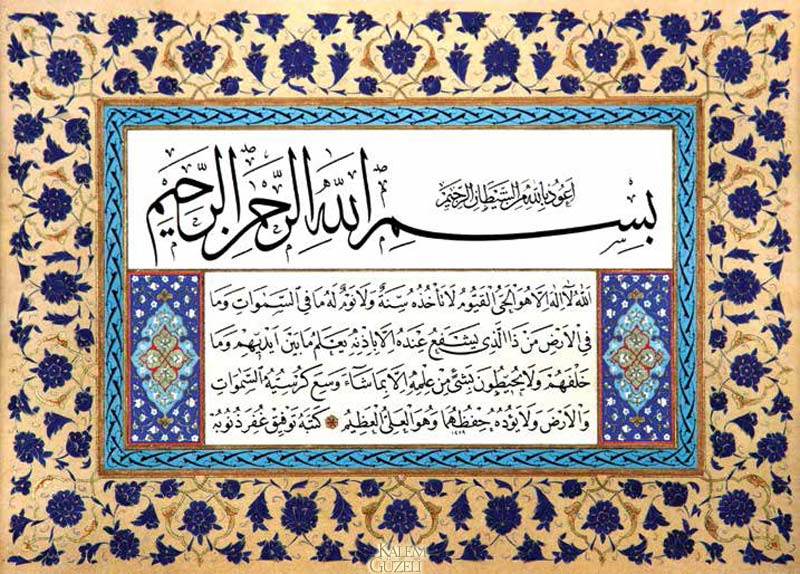 اعوذ بالله من الشيطان الرجيم
بسم الله الرحمن الرحيم
الله لا اله الا هو الحي القيوم لا تأخذه سنة ولا نوم له ما في السموات وما
في الارض من ذا الذي يشفع عنده الا باذنه يعلم ما بين ايديهم وما
خلفهم ولا يحيطون بشئ من علمه الا بما شاء وسع كرسيه السموات
والارض ولا يؤده حفظهما وهو العلي العظيم كتبه توفيق غفر ذنوبه
KALEM
GÜZELİ